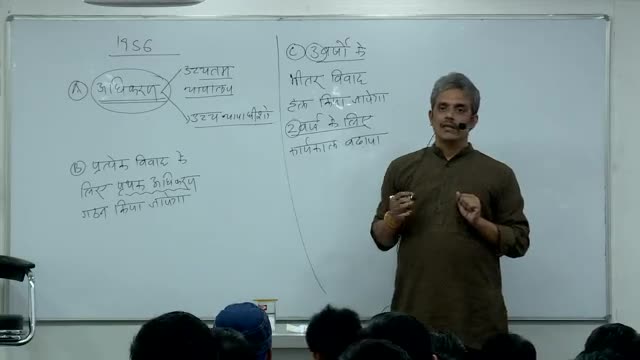 1956
Ⓐ अधिकरण
उच्चतम
न्यायालय
उच्च न्यायाधीशों
Ⓑ प्रत्येक विवाद के
लिए पृथक अधिकरण
गठन किया जायेगा
Ⓒ 3 वर्षों के
भीतर विवाद
हल किया जायेगा
2 वर्ष के लिए
कार्यकाल बढाया